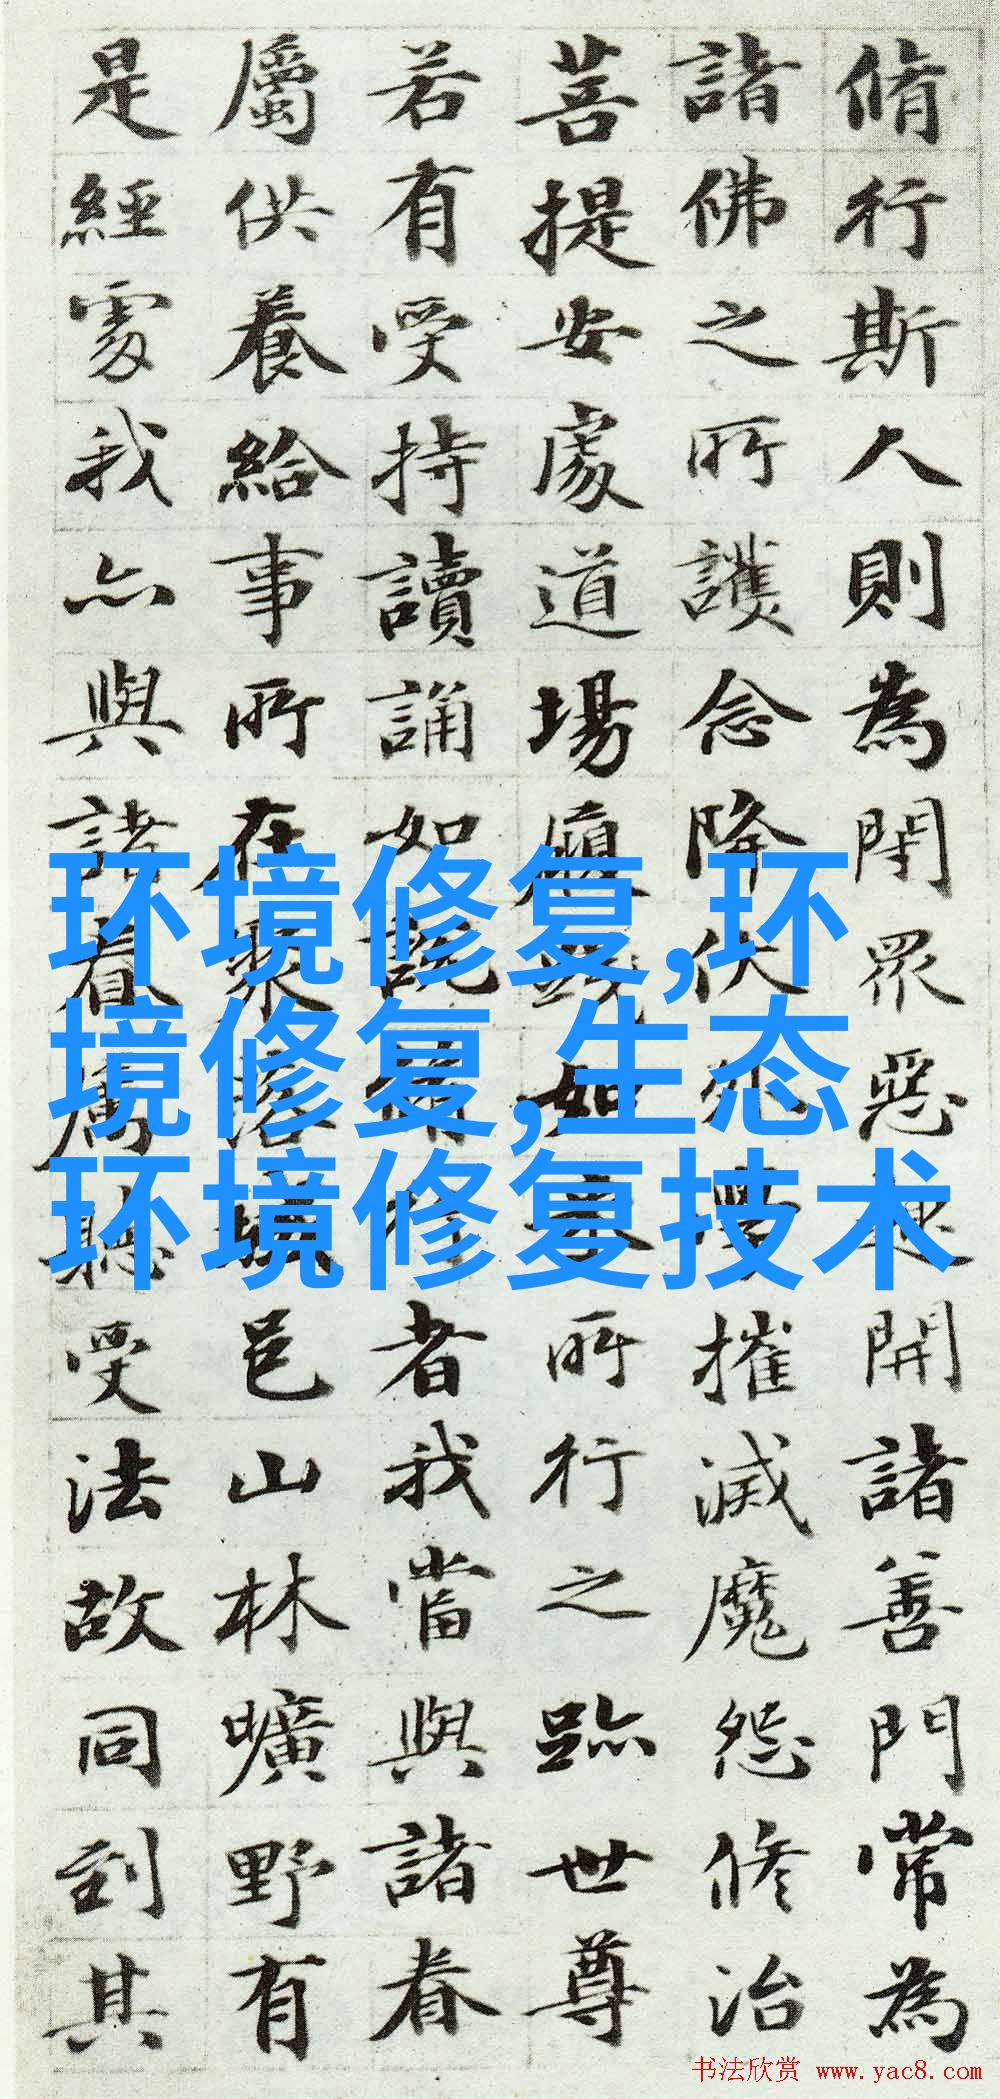 脩行斯人則為閇眾惡趣開諸善門常為
諸佛之所護念降伏外學摧滅魔怨脩治
菩提安處道場履踐如來所行之跡世尊
若有受持讀誦如說脩行者我當與諸眷
屬供養給事所在聚落城邑山林曠野有
是經處我亦與諸眷屬聽受法故同到其
环境修复,环
境修复,生态
环境修复技术
书法欣赏 www.yac8.com